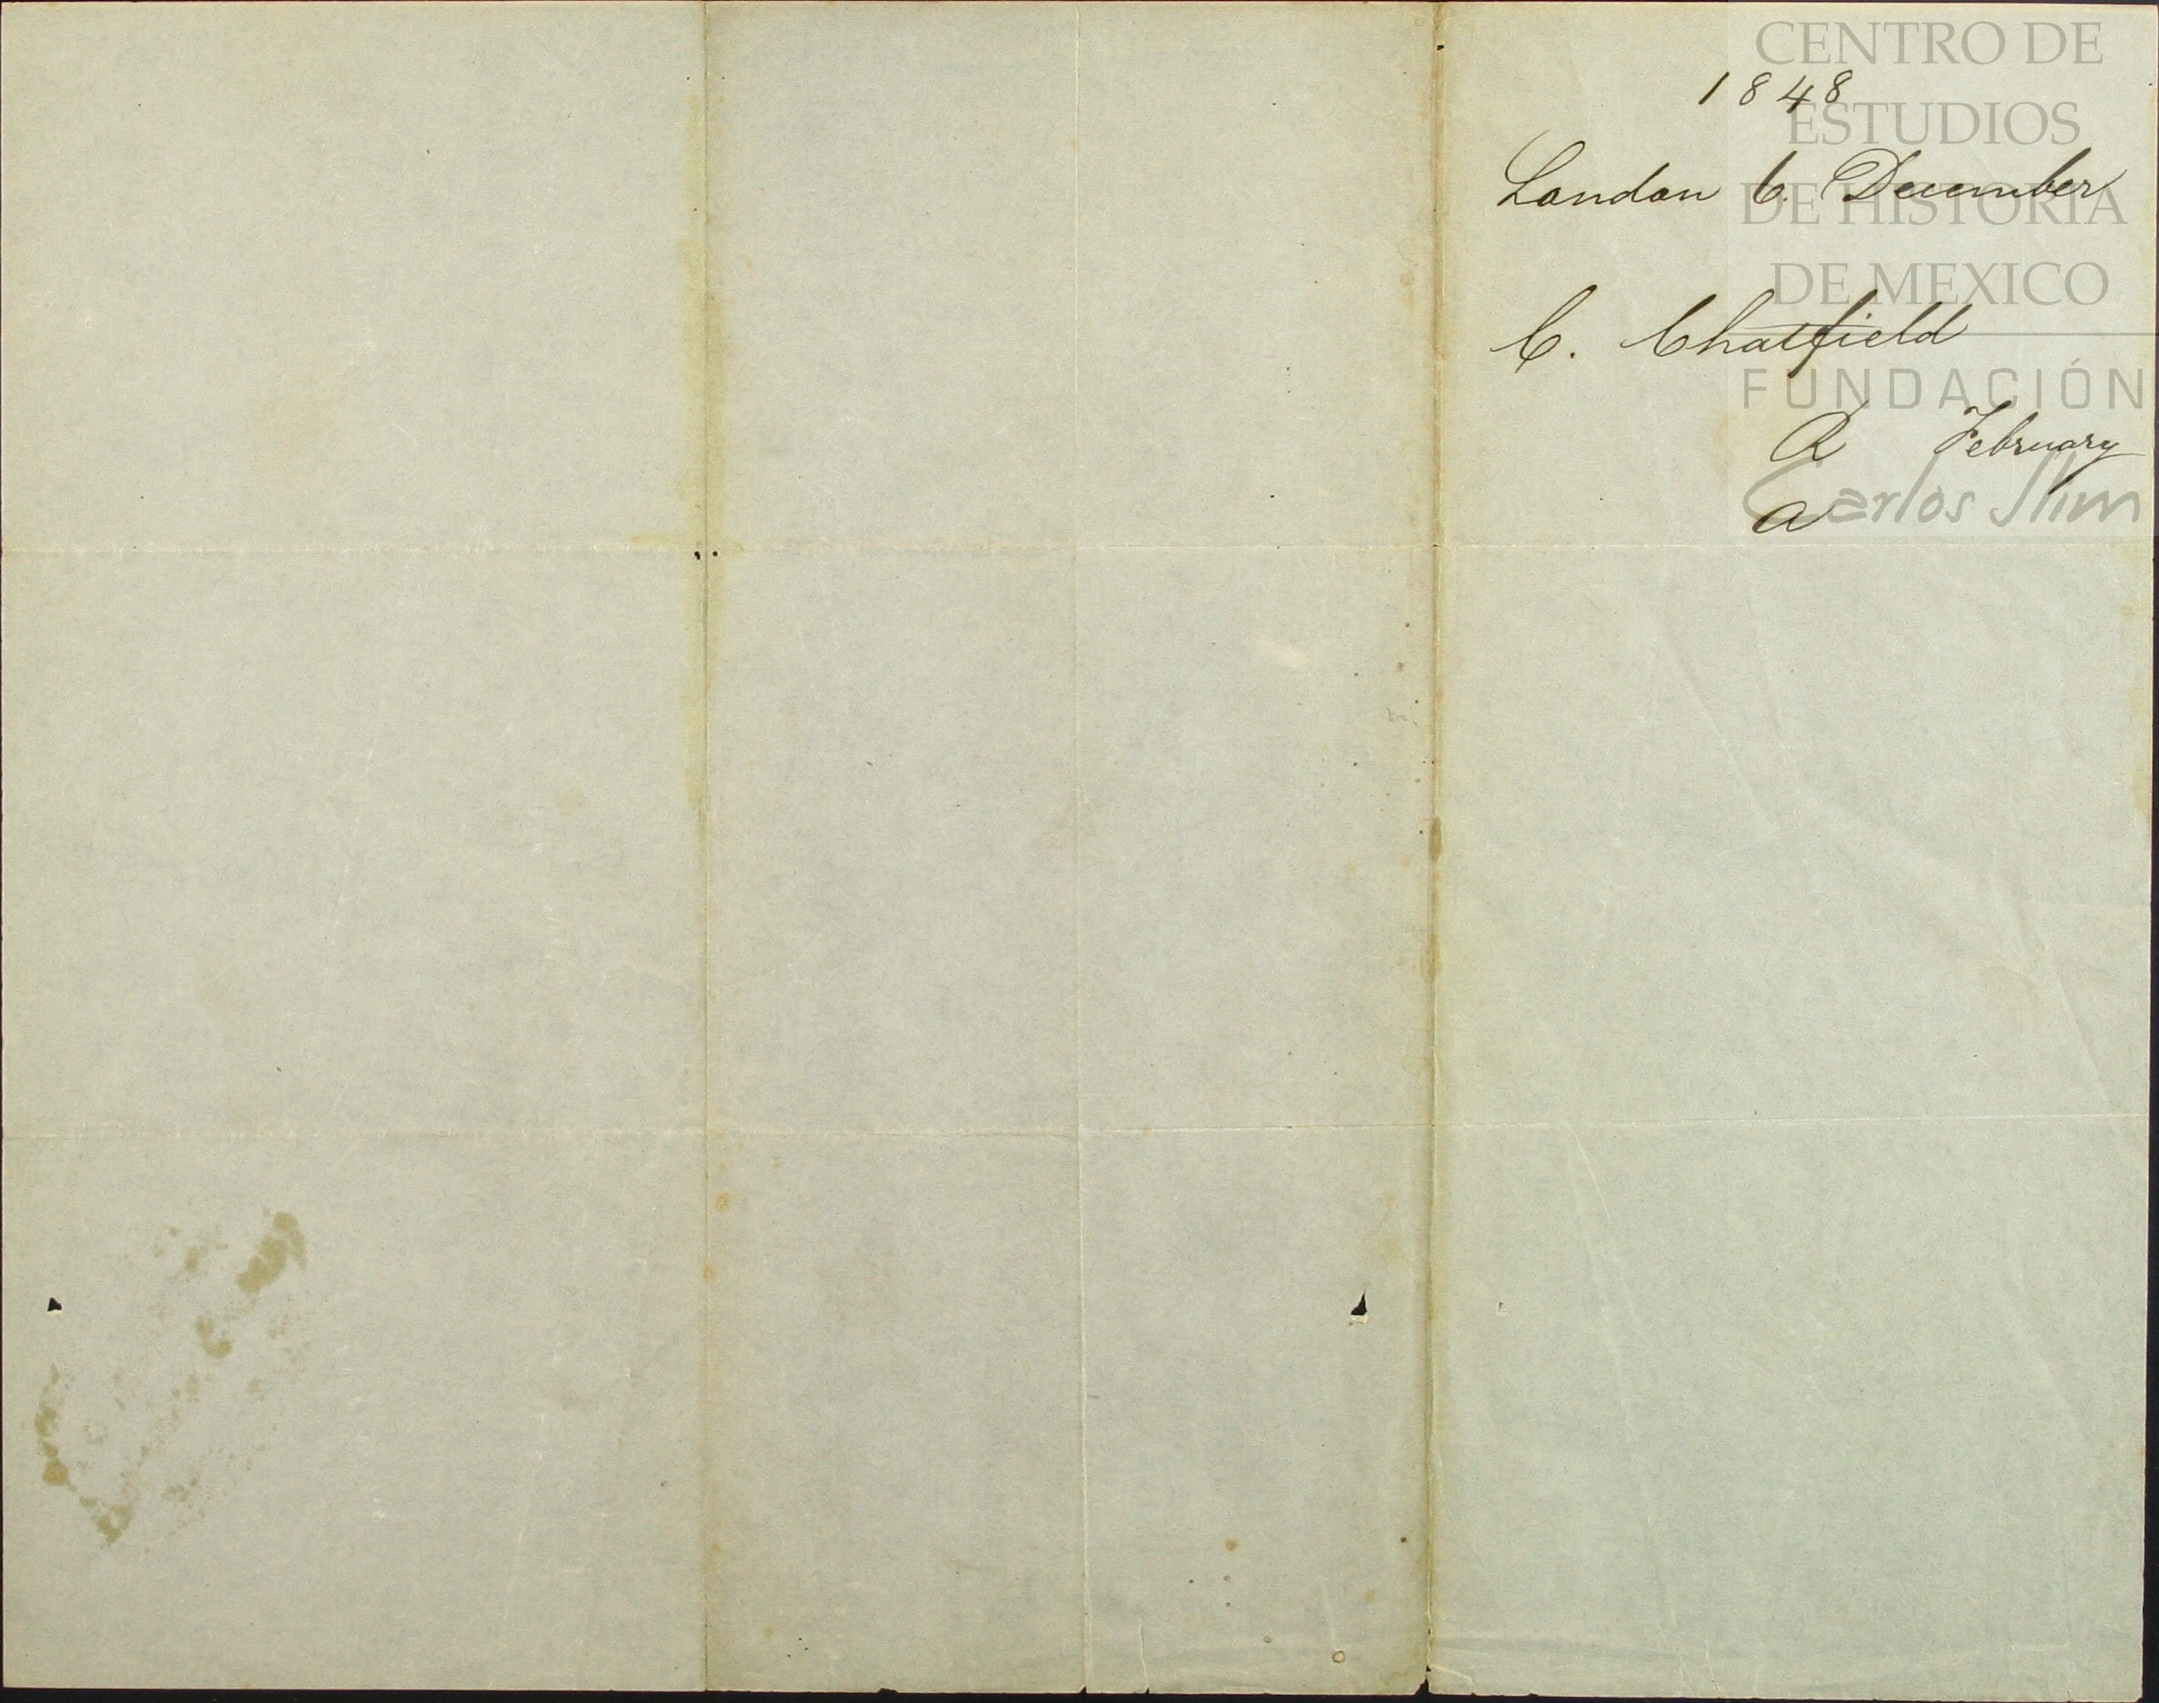 1848
London 6. December
C. Chatfield
R February
a
CENTRO DE
ESTUDIOS
DE HISTORIA
DE MEXICO
FUNDACIÓN
Carlos Slim